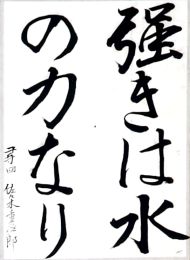 強きは水
の力なり
尋四 佐々木重次郎